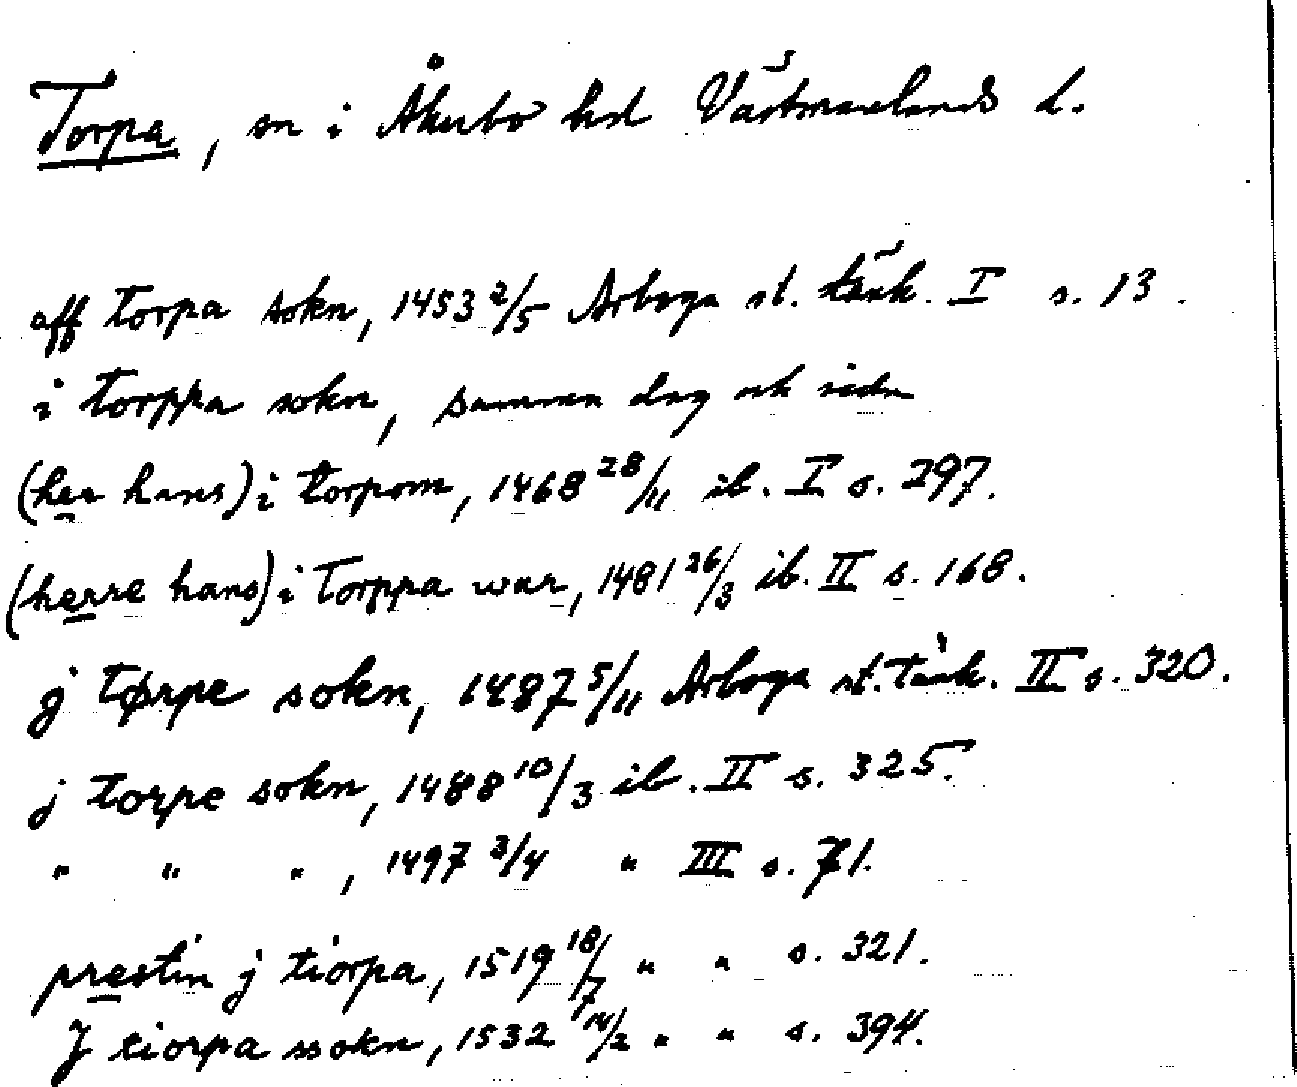 Torpa, sn i Åkerbo hd Västmanlands l.
aff torpa sokn, 1453 2/5 Arboga st. tänk. I s. 13.
i torppa sokn, samma dag och sida
(her hans) i torpom, 1468 28/11 ib. I s. 297.
(herre hans) i Torppa war, 1481 26/3 ib. II s. 168.
j tørpe sokn, 1487 5/11 Arboga st. tänk. II s. 320.
j torpe sokn, 1488 10/3 ib. II s. 325.
" " ", 1497 3/4 " III s. 71.
prestin j tiorpa, 1519 18/7 " " s. 321.
J tiorpa ssokn, 1532 14/2 " " s. 394.